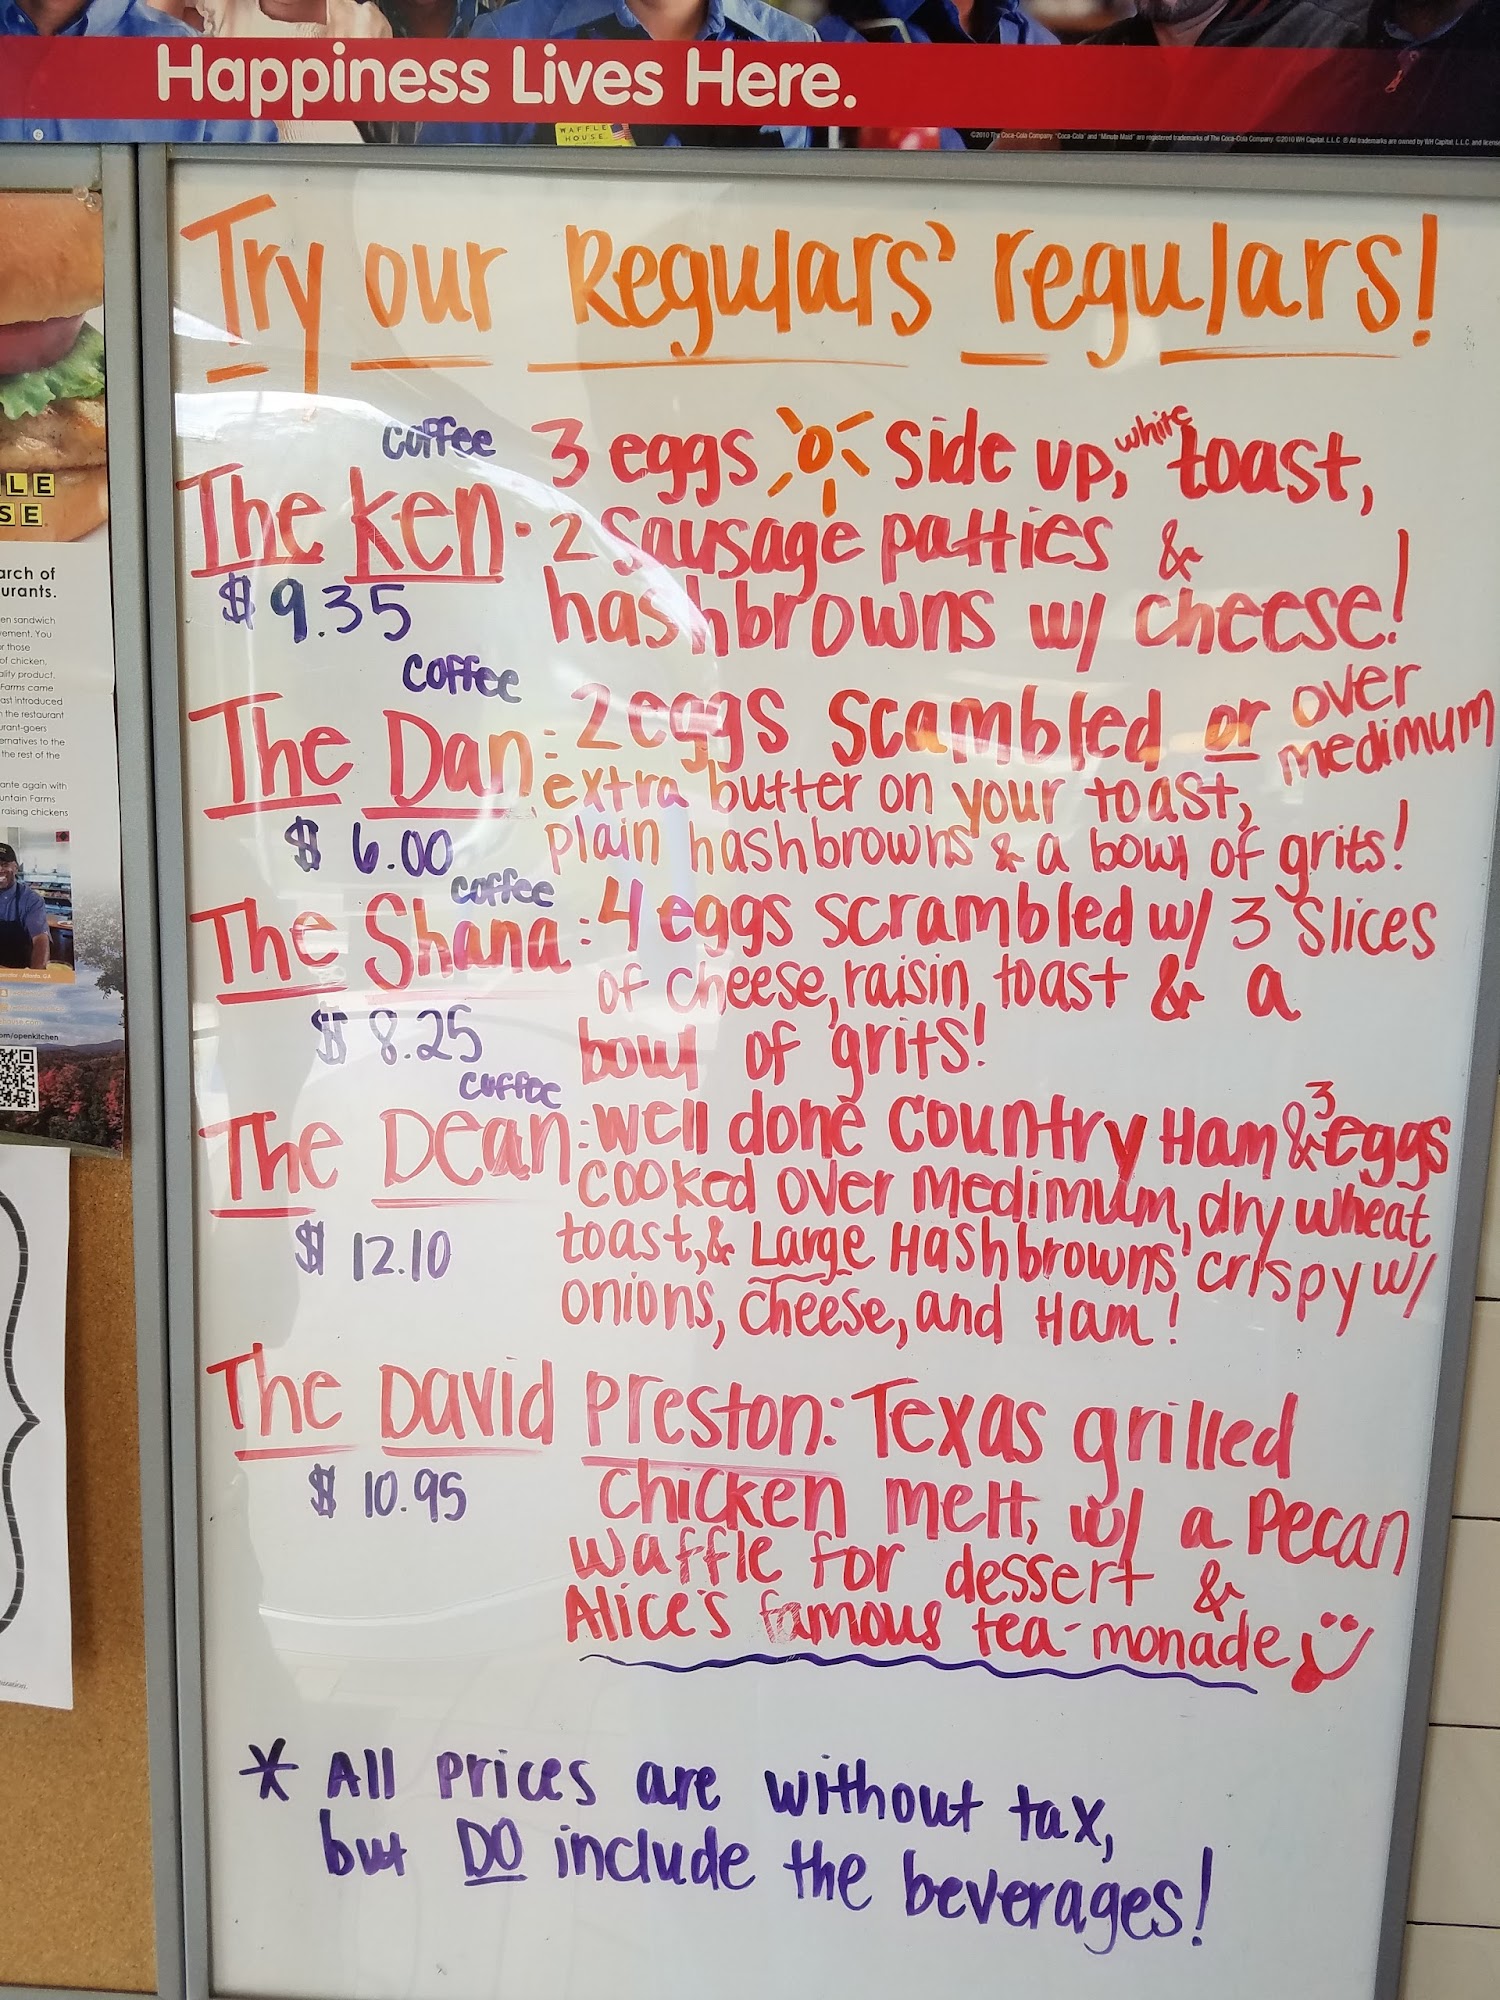 Happiness Lives Here.
WAFFLE
HOUSE
©2010 The Coca-Cola Company. "Coca-Cola" and "Minute Maid" are registered trademarks of The Coca-Cola Company. ©2010 WH Capital, L.L.C. ® All trademarks are owned by WH Capital, L.L.C. and
Try our Regulars' regulars!
coffee
The Ken. 3 eggs side up, white toast,
2 sausage patties &
$9.35 hashbrowns w/ cheese!
coffee
The Dan: 2 eggs scambled or over medimum
extra butter on your toast,
$6.00 plain hashbrowns & a bowl of grits!
coffee
The Shana: 4 eggs scrambled w/ 3 slices
of cheese, raisin toast & a
$8.25 bowl of grits!
coffee
The Dean: well done country Ham & 3 eggs
cooked over medimum, dry wheat
$12.10 toast, & Large Hashbrowns crispy w/
onions, cheese, and Ham!
The David Preston: Texas grilled
$10.95 chicken melt, w/ a Pecan
waffle for dessert &
Alice's famous tea-monade
* All prices are without tax,
but DO include the beverages!
LE
SE
arch of
urants.
en sandwich
ement. You
r those
of chicken,
ality product.
Farms came
ast introduced
n the restaurant
urant-goers
ernatives to the
the rest of the
ante again with
untain Farms
raising chickens
om/openkitchen